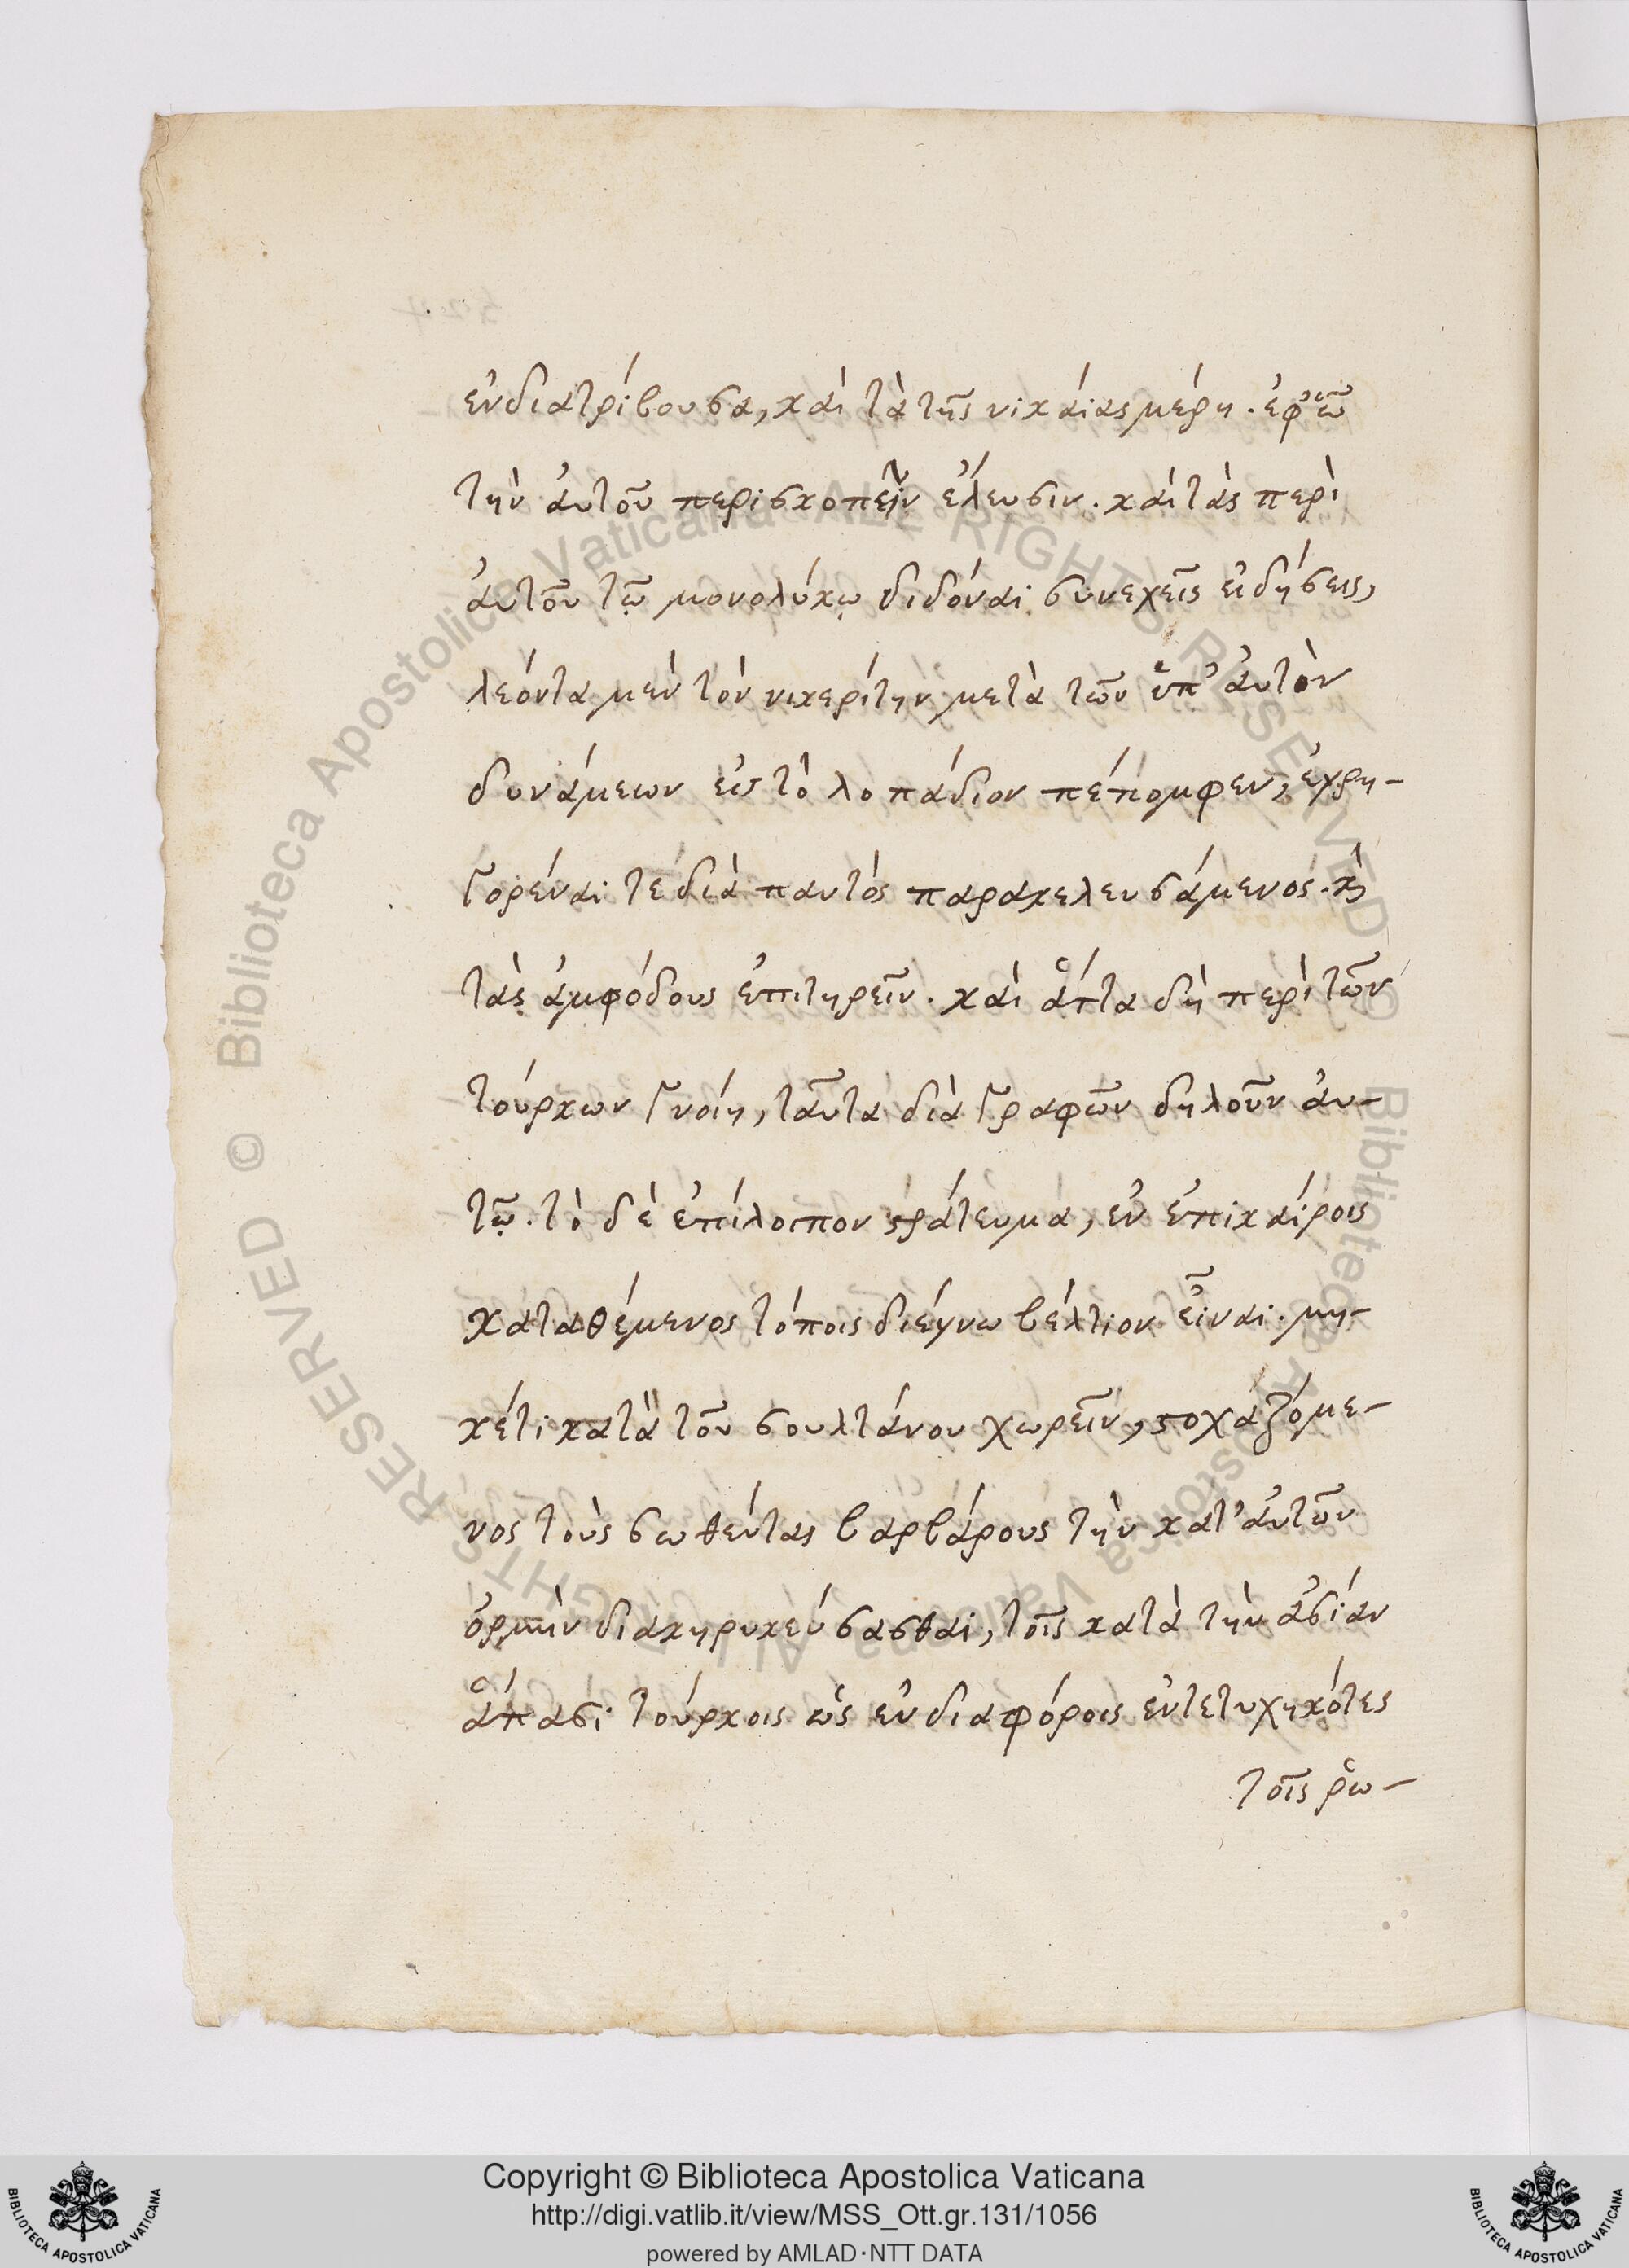 ἐνδιατρίβουσα, καὶ τὰ τῆς νικαίας μέρη. ἐφ' ὧ
τὴν ἀυτοῦ περισκοπεῖν ἔλευσιν. καὶ τὰς περὶ
ἀυτοῦ τῷ μονολύκῳ διδόναι συνεχεῖς εἰδήσεις,
λεόντα μὲν τὸν νικερίτην μετὰ τῶν ὑπ' ἀυτὸν
δυνάμεων εἰς τὸ λοπάδιον πέπομφεν, ἐγρη-
γορέναι τὲ διὰ παντός παρακελευσάμενος. κὶ
τὰς ἀμφόδους ἐπιτηρεῖν. καὶ ἅττα δὴ περὶ τῶν
τούρκων γνοίη, ταῦτα διὰ γραφῶν δηλοῦν ἀυ-
τῷ. τὸ δὲ ἐπίλοιπον ϛράτευμα, ἐν ἐπικαίροις
καταθέμενος τόποις διέγνω βέλτιον εἶναι. μη-
κέτι κατὰ τοῦ σουλτάνου χωρεῖν, ϛοχαζόμε-
νος τοὺς σωθέντας βαρβάρους τὴν κατ' ἀυτῶν
ὁρμὴν διακηρυκεύσασθαι, τοῖς κατὰ τὴν ἀσίαν
ἅπασι τούρκοις ὡς ἐν διαφόροις ἐντετυχηκότες
τοῖς ῥω-
Copyright © Biblioteca Apostolica Vaticana
http://digi.vatlib.it/view/MSS_Ott.gr.131/1056
powered by AMLAD·NTT DATA
BIBLIOTECA APOSTOLICA VATICANA
BIBLIOTECA APOSTOLICA VATICANA